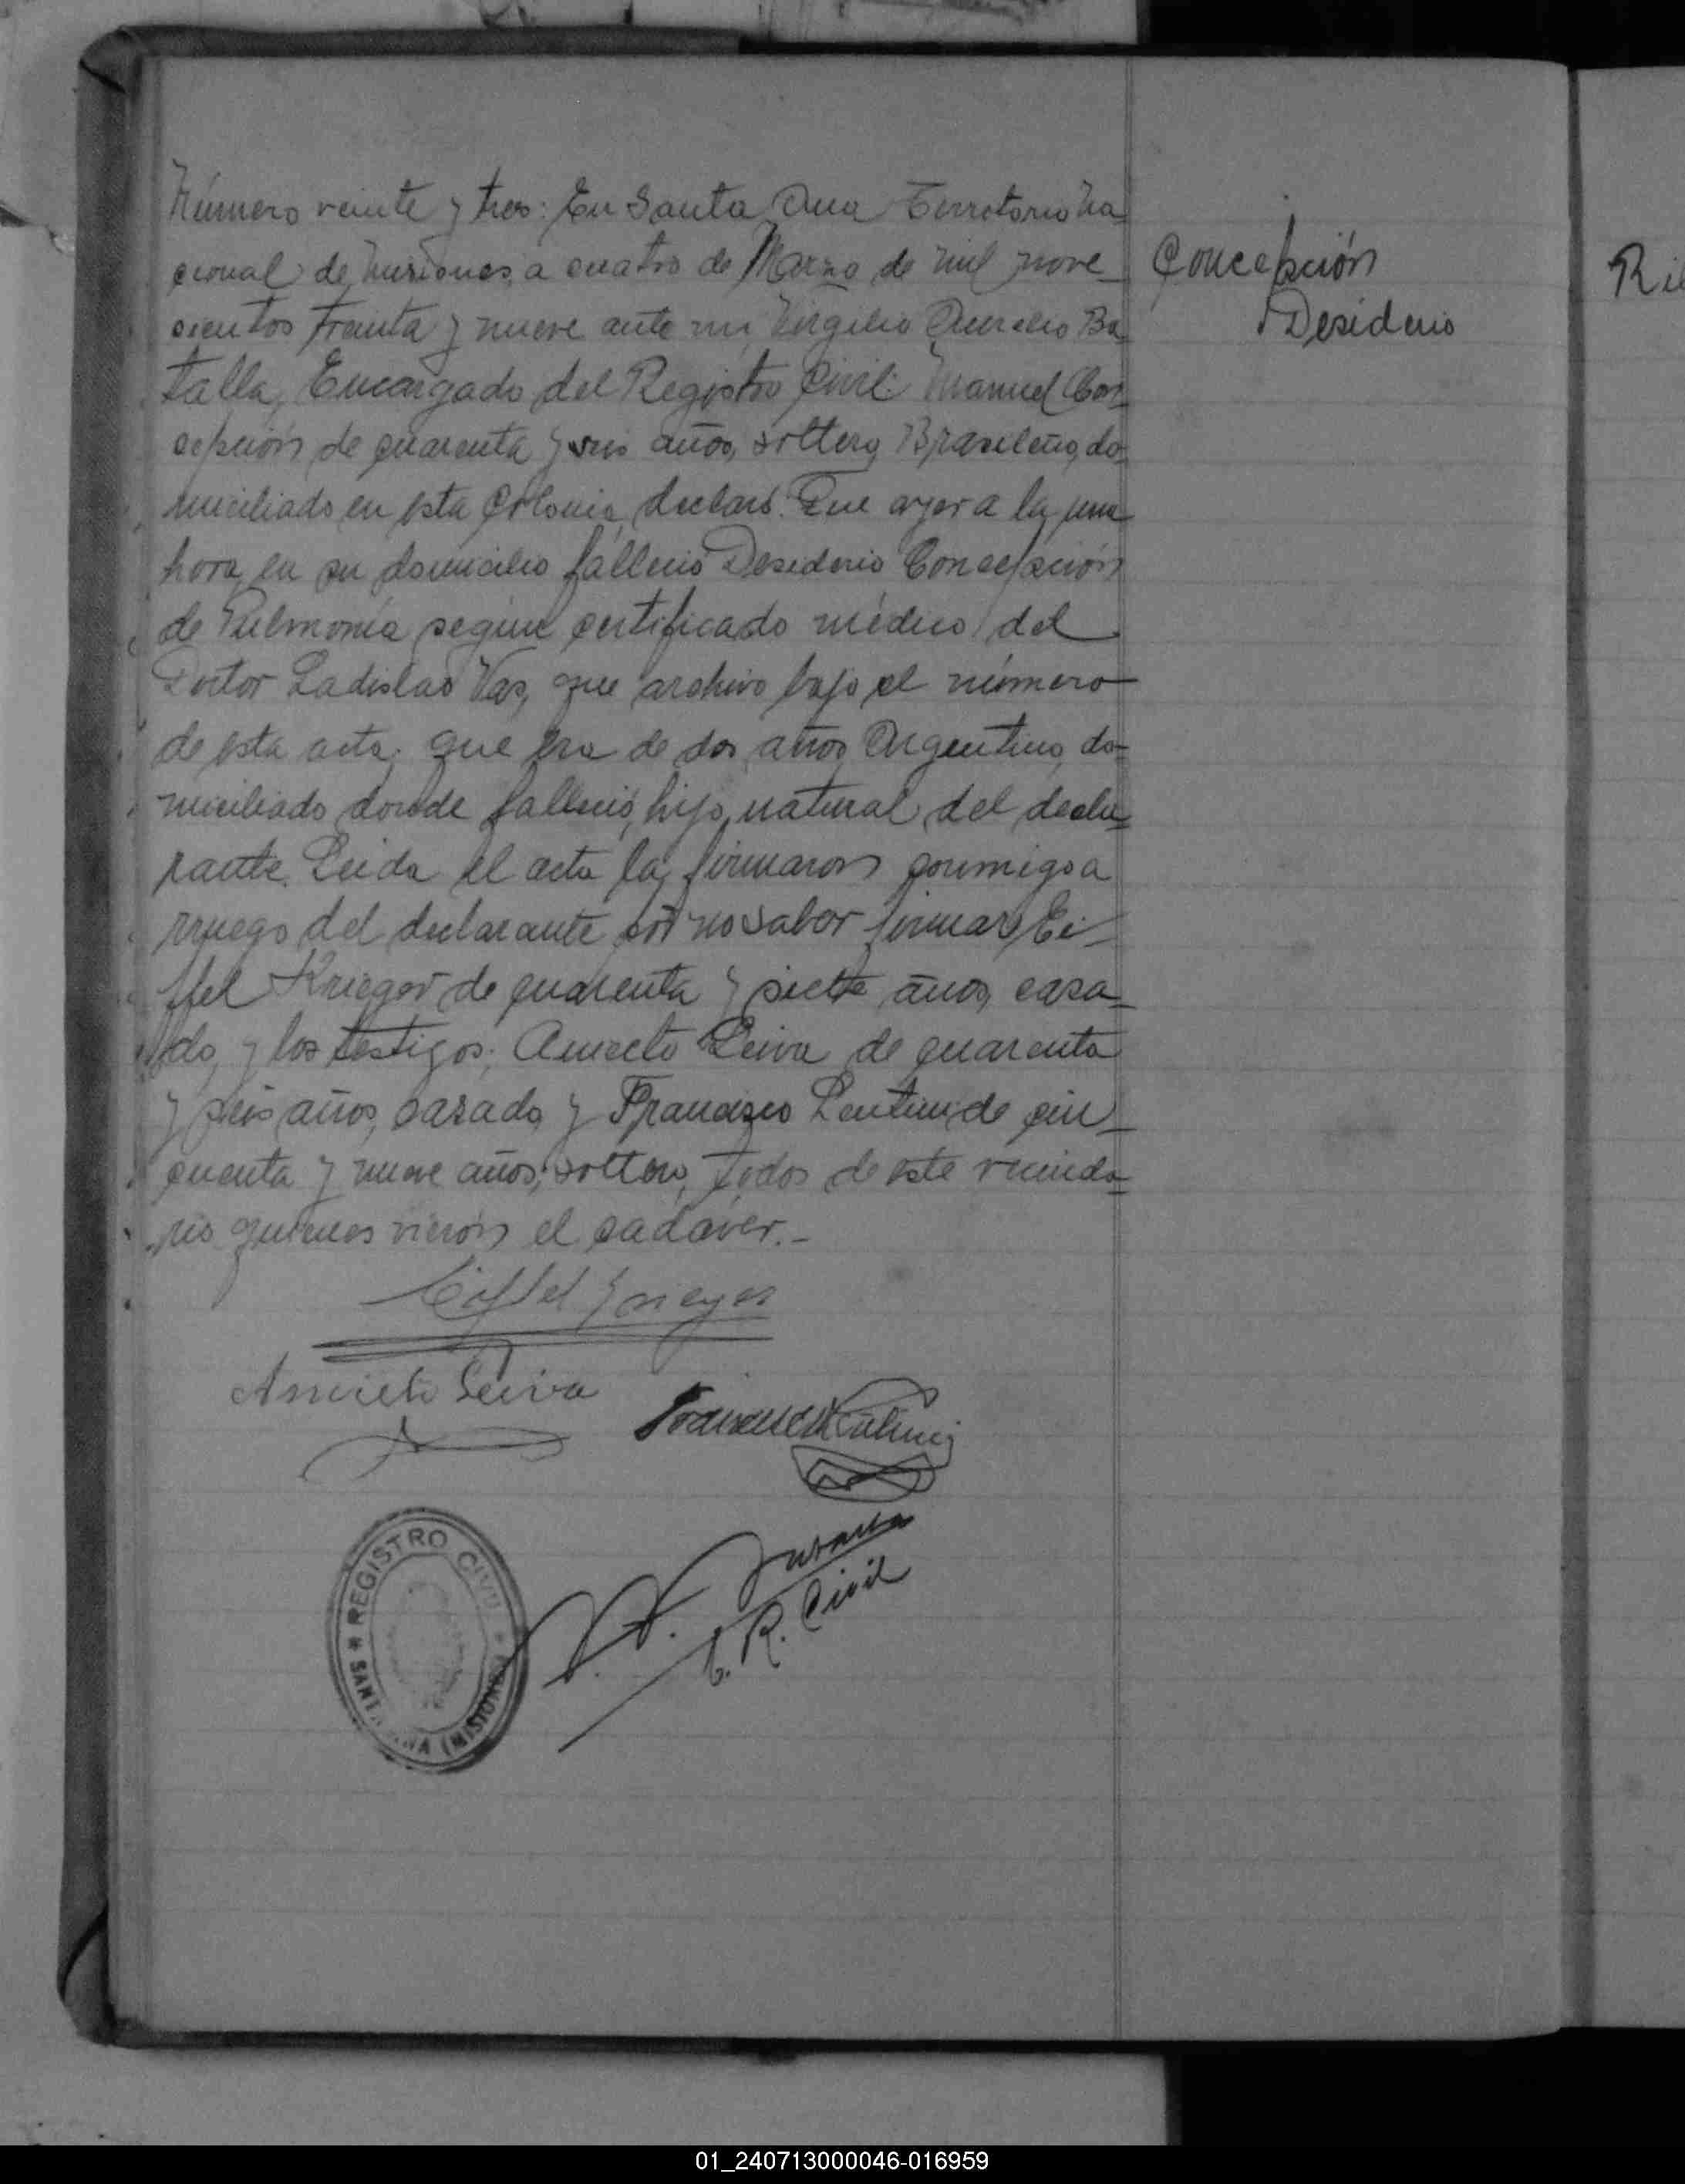 Número veinte y tres: En Santa Ana Territorio Na
cional de Misiones, a cuatro de Marzo de mil nove_
cientos treinta y nueve ante mi, Virgilio Aurelio Ba
talla, Encargado del Registro Civil: Manuel Con_
cepción de cuarenta y seis años, soltero, Brasileño, do_
miciliado en esta Colonia, declaró: Que ayer a la una
hora, en su domicilio falleció Desiderio Concepción
de Pulmonía según certificado médico del
Doctor Ladislao Vas, que archivo bajo el número
de esta acta; que era de dos años, Argentino, do-
miciliado donde falleció, hijo natural del decla_
rante. Leida el acta la firmaron conmigo a
rruego del declarante por no saber firmar, Ei_
ffel Krieger de cuarenta y siette años, casa_
do, y los testigos; Aniceto Leiva de cuarenta
y seis años, casado, y Francisco de cin_
cuenta y nueve años; soltero, todos de este vecinda_
rio quienes vieron el cadáver._
Concepción
Desiderio
Eiffel Krieger
Aniceto Leiva
Francisco
E. R. Civil
* REGISTRO CIVIL *
SANTA ANA (MISIONES)
Ri
01_240713000046-016959